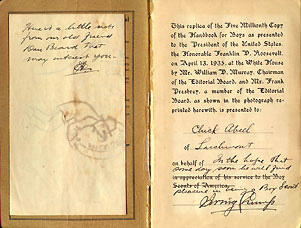 Here is a little note
from our old friend
Dan Beard that
may interest you.
This replica of the Five Millionth Copy
of the Handbook for Boys as presented
to the President of the United States,
the Honorable Franklin D. Roosevelt,
on April 13, 1935, at the White House
by Mr. William D. Murray, Chairman
of the Editorial Board, and Mr. Frank
Presbrey, a member of the Editorial
Board, as shown in the photograph re-
printed herewith, is presented to:
Chuck Abeel
of Larchmont
on behalf of In the hope that
some day soon he will find
in appreciation of his service to the Boy
Scouts of America.
pleasure in being a Boy Scout
Irving Crump